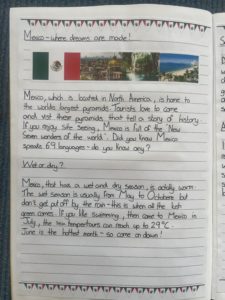 Mexico - where dreams are made!
Mexico, which is located in North America, is home to
the worlds largest pyramids. Tourists love to come
and visit these pyramids that tell a story of history.
If you enjoy site seeing, Mexico is full of the 'New
Seven wonders of the world'. Did you know Mexico
speaks 69 languages - do you know any?
Wet or dry?
Mexico, that has a wet and dry season, is actully warm.
The wet season is usually from May to Octobere but
don't get put off by the rain - this is when all the lush
green comes. If you like swimming, then come to Mexico in
July, the temperatures can reach up to 29°C.
June is the hottest month - so come on down!